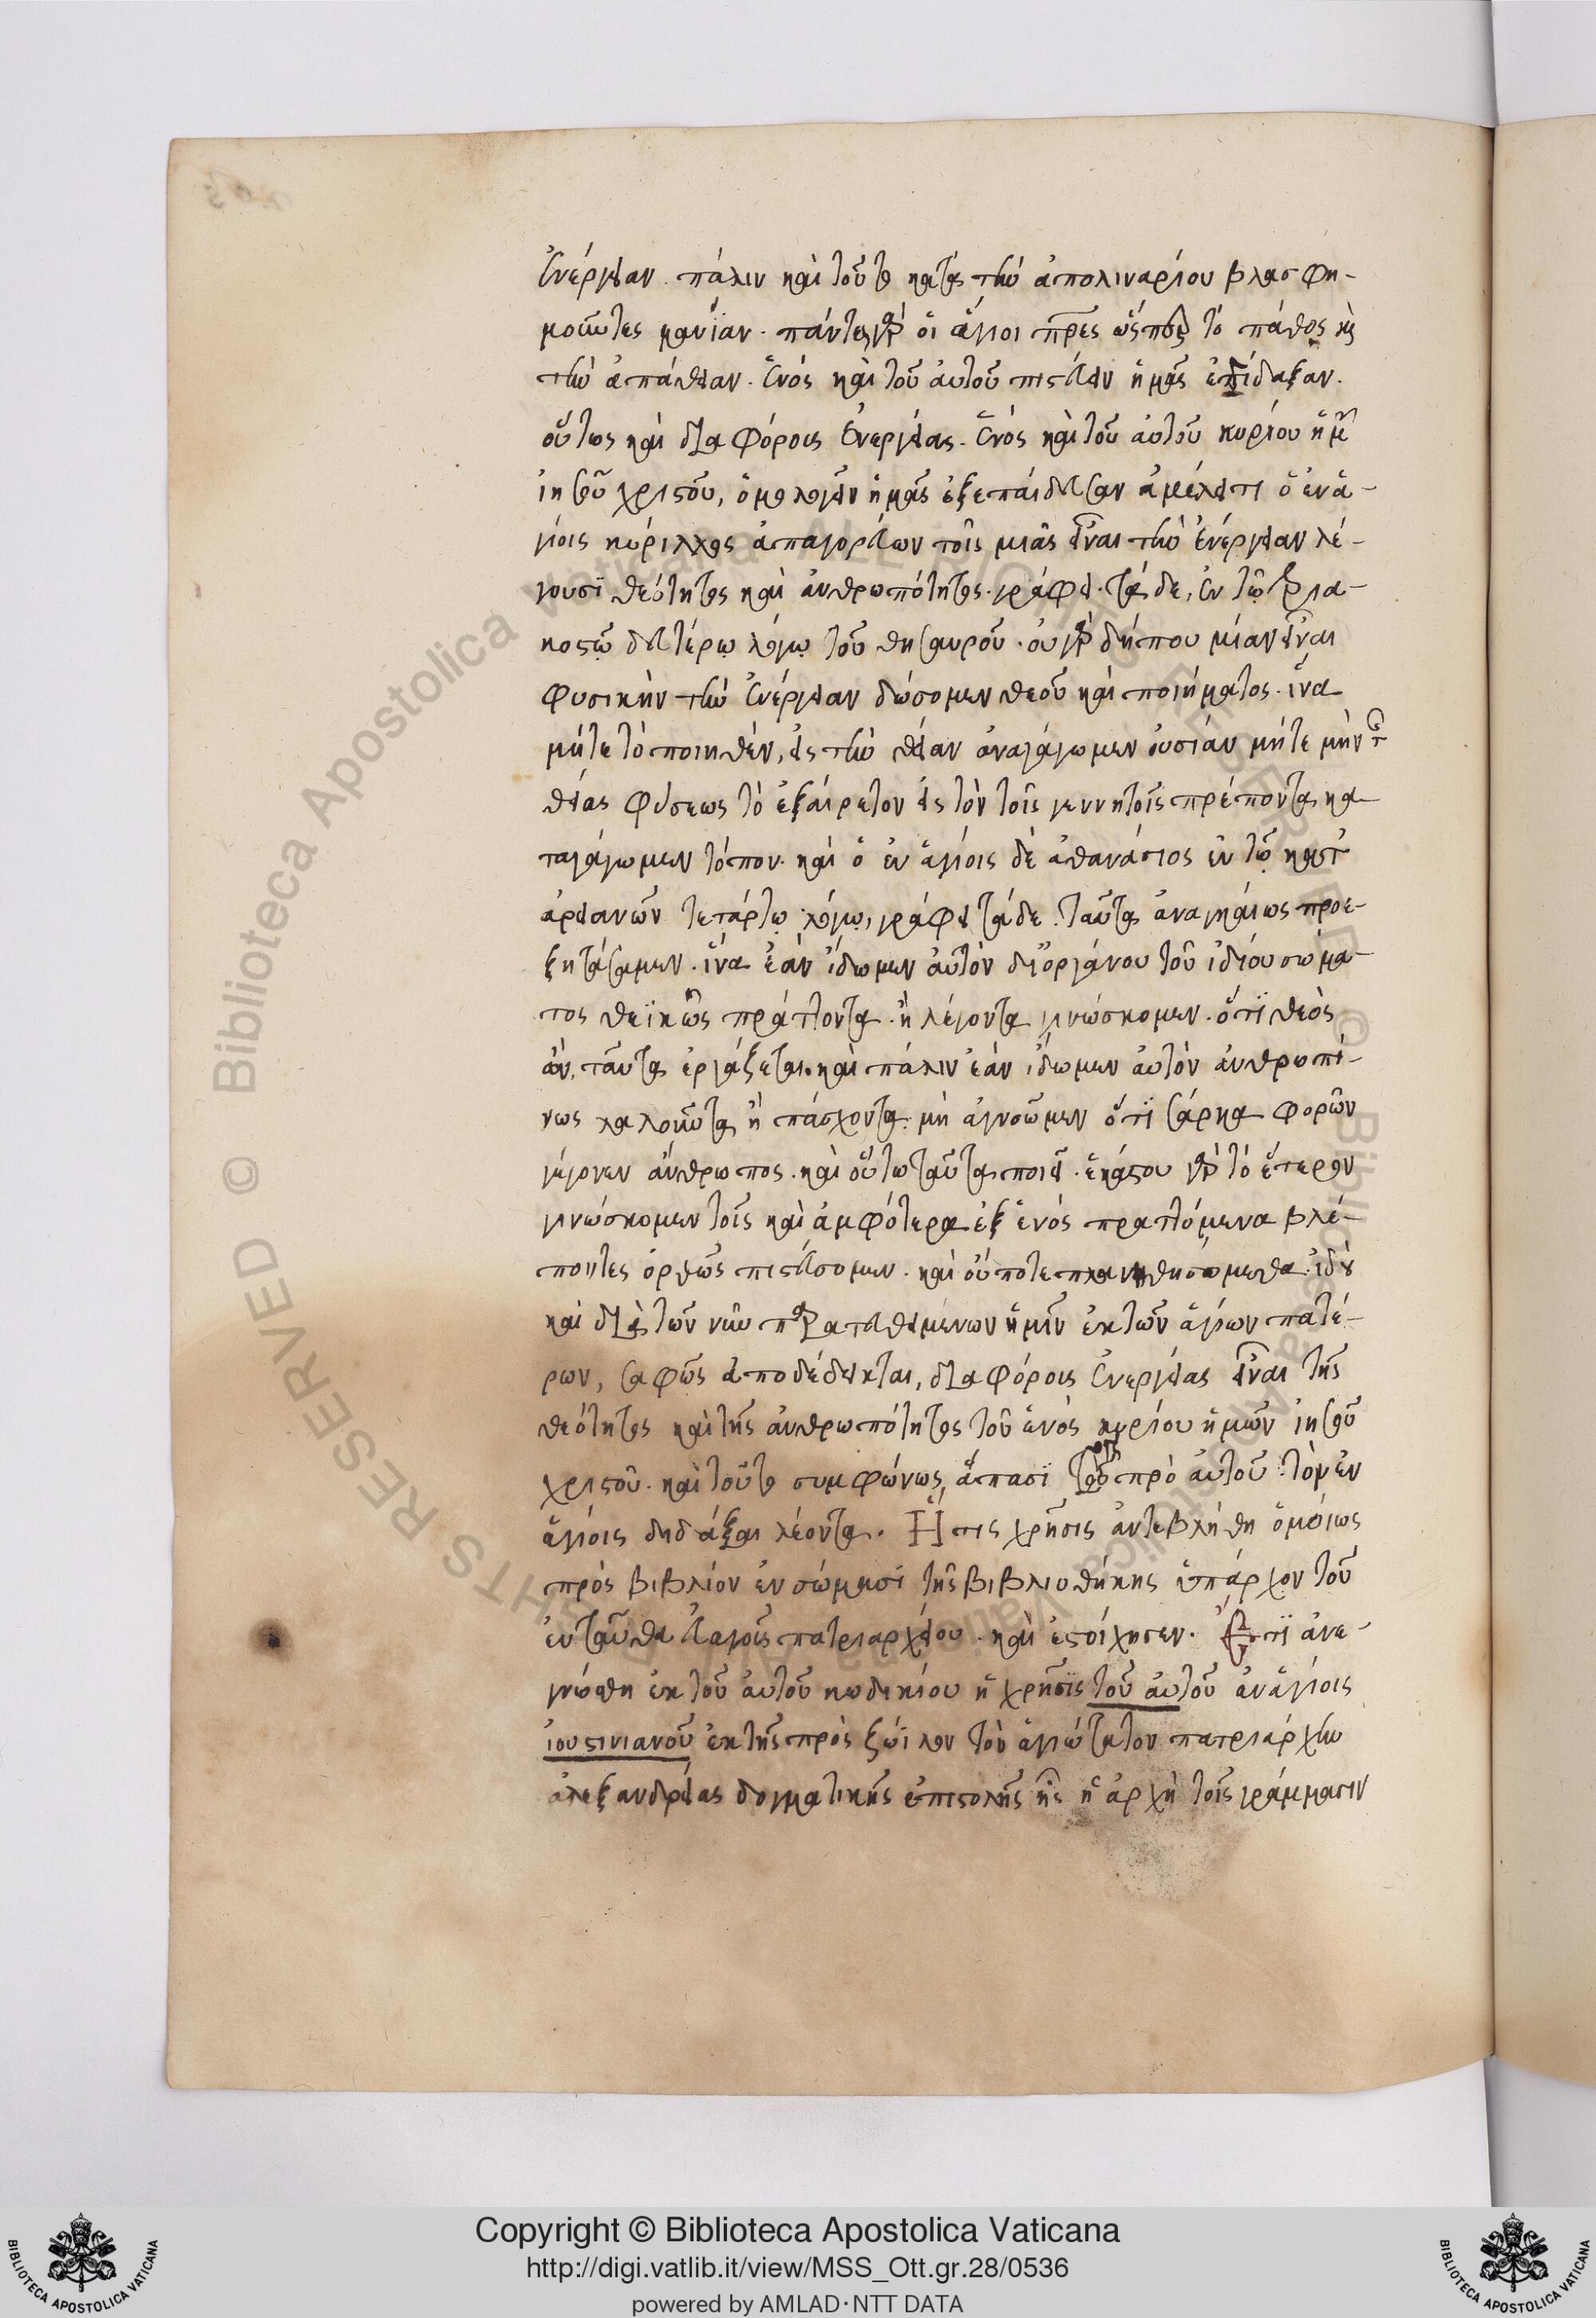 ἐνέργειαν. πάλιν καὶ τοῦτο κατὰ τὴν ἀπολιναρίου βλασφη-
μοῦντες μανίαν. πάντες γὰρ οἱ ἅγιοι πρες ὥσπερ τὸ πάθος καὶ
τὴν ἀπάθειαν. ἑνός καὶ τοῦ αὐτοῦ πιστεύειν ἡμᾶς
οὕτως καὶ διαφόροις ἐνεργείας. ἑνός καὶ τοῦ αὐτοῦ κυρίου ἡμ
ἰησοῦ χριστοῦ, ὁμολογεῖν ἡμᾶς ἐξεπαίδευσαν ἀμέλει τι ὁ ἐν ἁ-
γίοις κύριλλος ἀπαγορεύων τοῖς μιᾶς εἶναι τὴν ἐνέργειαν λέ-
γουσι θεότητος καὶ ἀνθρωπότητος. γράφει. τάδε, ἐν τῷ τρια-
κοστῷ δευτέρῳ λόγῳ τοῦ θησαυροῦ. οὐ γὰρ δήπου μίαν εἶναι
φυσικὴν τὴν ἐνέργειαν δώσομεν θεοῦ καὶ ποιήματος. ἵνα
μήτε τὸ ποιηθέν, εἰς τὴν θείαν ἀναγάγωμεν οὐσίαν μήτε μὴν τ
θείας φύσεως τὸ ἐξαίρετον εἰς τὸν τοῖς γεννητοῖς πρέποντα κα
ταγάγωμεν τόπον. καὶ ὁ ἐν ἁγίοις δὲ ἀθανάσιος ἐν τῷ κατ
ἀρειανῶν τετάρτῳ λόγῳ, γράφει τάδε. ταῦτα ἀναγκαίως προε-
ξητάσαμεν. ἵνα ἐὰν ἴδωμεν αὐτὸν δι' ὀργάνου τοῦ ἰδίου σώμα-
τος θεϊκῶς πράττοντα. ἢ λέγοντα γινώσκομεν. ὅτι θεὸς
ὢν, ταῦτα ἐργάζεται. καὶ πάλιν ἐὰν ἴδωμεν αὐτὸν ἀνθρωπί-
νως λαλοῦντα ἢ πάσχοντα. μὴ ἀγνοῶμεν ὅτι σάρκα φορῶν
γέγονεν ἄνθρωπος. καὶ οὕτω ταῦτα ποιεῖ. ἑκάστου γὰρ τὸ ἕτερον
γινώσκομεν τοῖς καὶ ἀμφότερα ἐξ ἑνός πραττόμενα βλέ-
ποντες ὀρθῶς πιστεύσομεν. καὶ οὔποτε πλανηθησόμεθα. ἰδοὺ
καὶ διὰ τῶν νῦν παρατεθειμένων ἡμῖν ἐκ τῶν ἁγίων πατέ-
ρων, σαφῶς ἀποδέδεικται, διαφόροις ἐνεργείας εἶναι τῆς
θεότητος καὶ τῆς ἀνθρωπότητος τοῦ ἑνὸς κυρίου ἡμῶν ἰησοῦ
χριστοῦ. καὶ τοῦτο συμφώνως ἅπασι τοῖς πρὸ αὐτοῦ τὸν ἐν
ἁγίοις διδάξαι λέοντα. Ἥτις χρῆσις ἀντεβλήθη ὁμοίως
πρὸς βιβλίον ἐν σώμασι τῆς βιβλιοθήκης ὑπάρχον τοῦ
ἐνταῦθα εὐαγοῦς πατριαρχείου. καὶ ἐστοίχησεν. Ἔτι ἀνε-
γνώσθη ἐκ τοῦ αὐτοῦ κωδικίου ἡ χρῆσις τοῦ αὐτοῦ ἐν ἁγίοις
ἰουστινιανοῦ ἐκ τῆς πρὸς ζώϊλον τὸν ἁγιώτατον πατριάρχην
ἀλεξανδρείας δογματικῆς ἐπιστολῆς ἧς ἡ ἀρχὴ τοῖς γράμμασιν
Copyright © Biblioteca Apostolica Vaticana
http://digi.vatlib.it/view/MSS_Ott.gr.28/0536
powered by AMLAD·NTT DATA